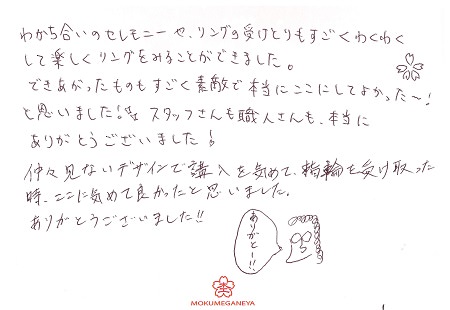 わかち合いのセレモニーや、リングの受けとりもすごくわくわく
して楽しくリングをみることができました。
できあがったものもすごく素敵で本当にここにしてよかった〜!
と思いました!! スタッフさんも職人さんも、本当に
ありがとうございました!
仲々見ないデザインで購入を気めて、指輪を受け取った
時、ここに気めて良かったと思いました。
ありがとうございました!!
ありがとー!!
MOKUMEGANEYA